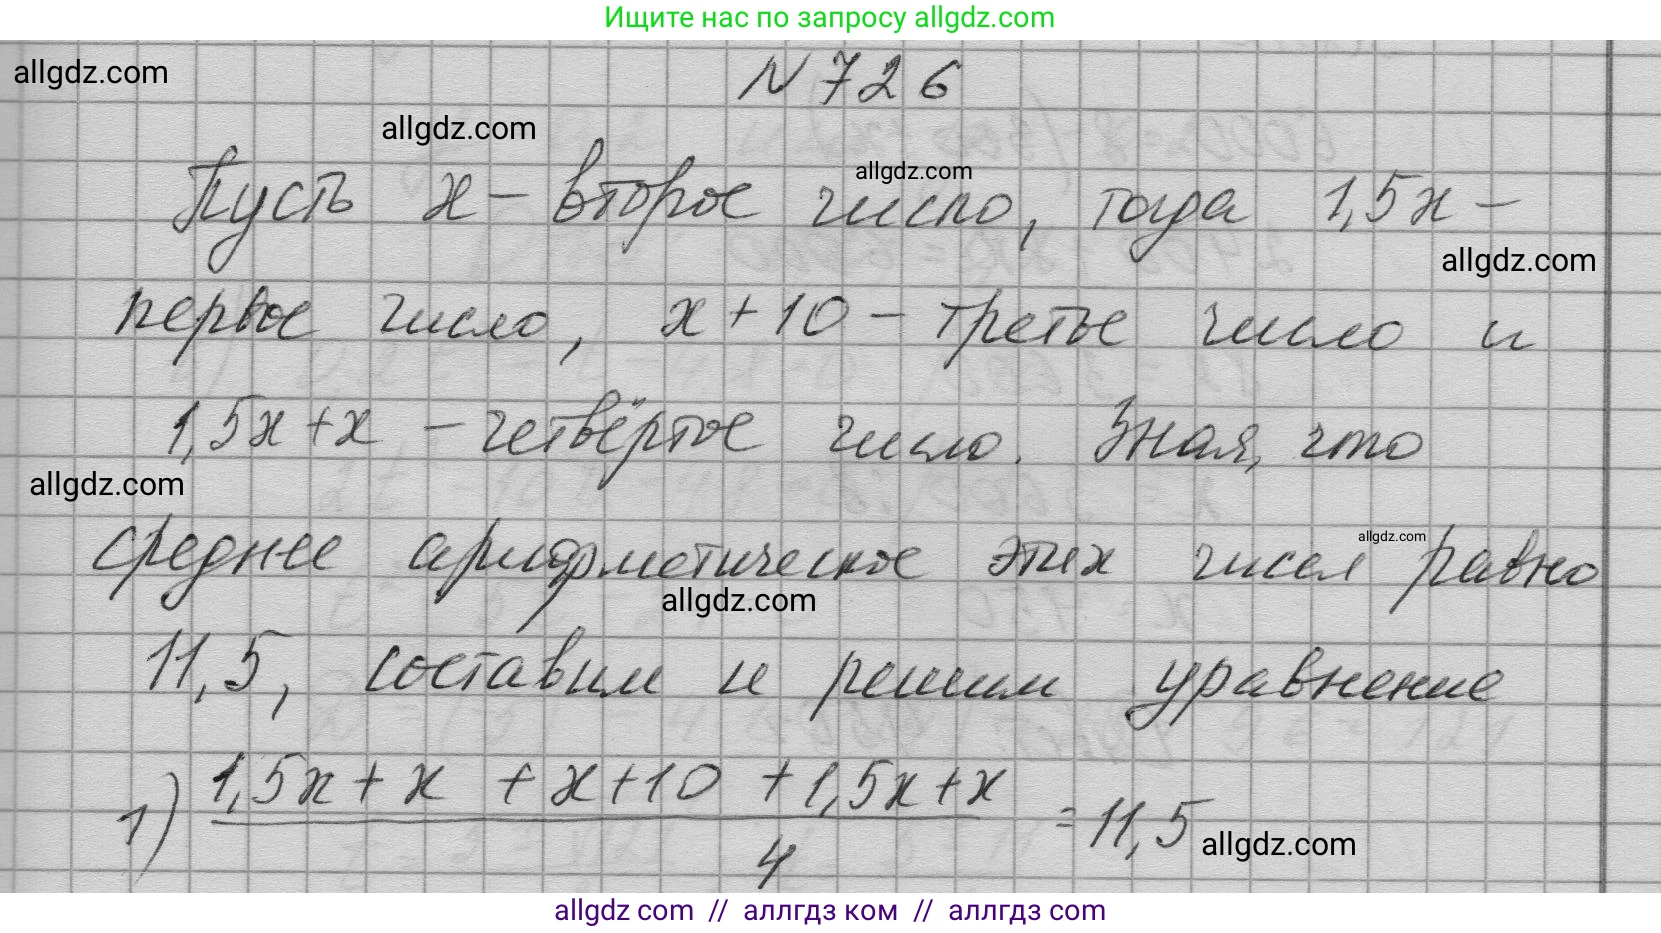 Ищите нас по запросу allgdz.com
N 726
allgdz.com
allgdz.com
allgdz.com
Пусть x – второе число, тогда 1,5x –
allgdz.com
первое число, x + 10 – третье число и
1,5x + x – четвёртое число. Зная, что
allgdz.com
allgdz.com
среднее арифметическое этих чисел равно
allgdz.com
11,5, составим и решим уравнение
1) 1,5x + x + x + 10 + 1,5x + x
= 11,5
allgdz.com
4
allgdz com // аллгдз ком // аллгдз com